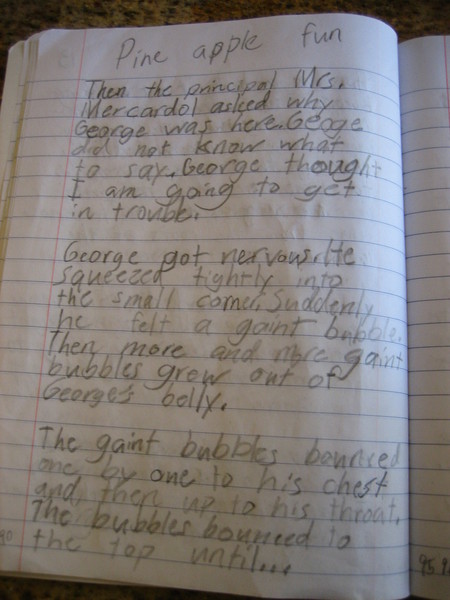 Pine apple fun
Then the principal Mrs.
Mercardol asked why
George was here. Geoge
did not know what
to say. George thought
I am going to get
in trouble.
George got nervous. He
squeezed tightly into
the small corner. Suddenly
he felt a gaint bubble.
Then more and more gaint
bubbles grew out of
George's belly.
The gaint bubbles bounced
one by one to his chest
and then up to his throat.
The bubbles bounced to
the top until...